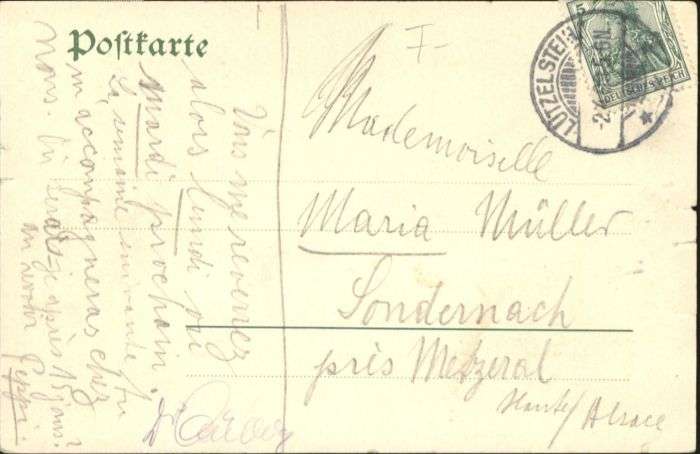 Postkarte
I-
LÜTZELSTEIN
5
DEUTSCHES REICH
Mademoiselle
Maria Müller
Sondernach
près Metzeral
Haute/Alsace
Vous me reverrez
alors lundi ou
mardi prochain.
La semaine suivante tu
m'accompagneras chez
nous.
après 15 jours?
au revoir
Peppi.